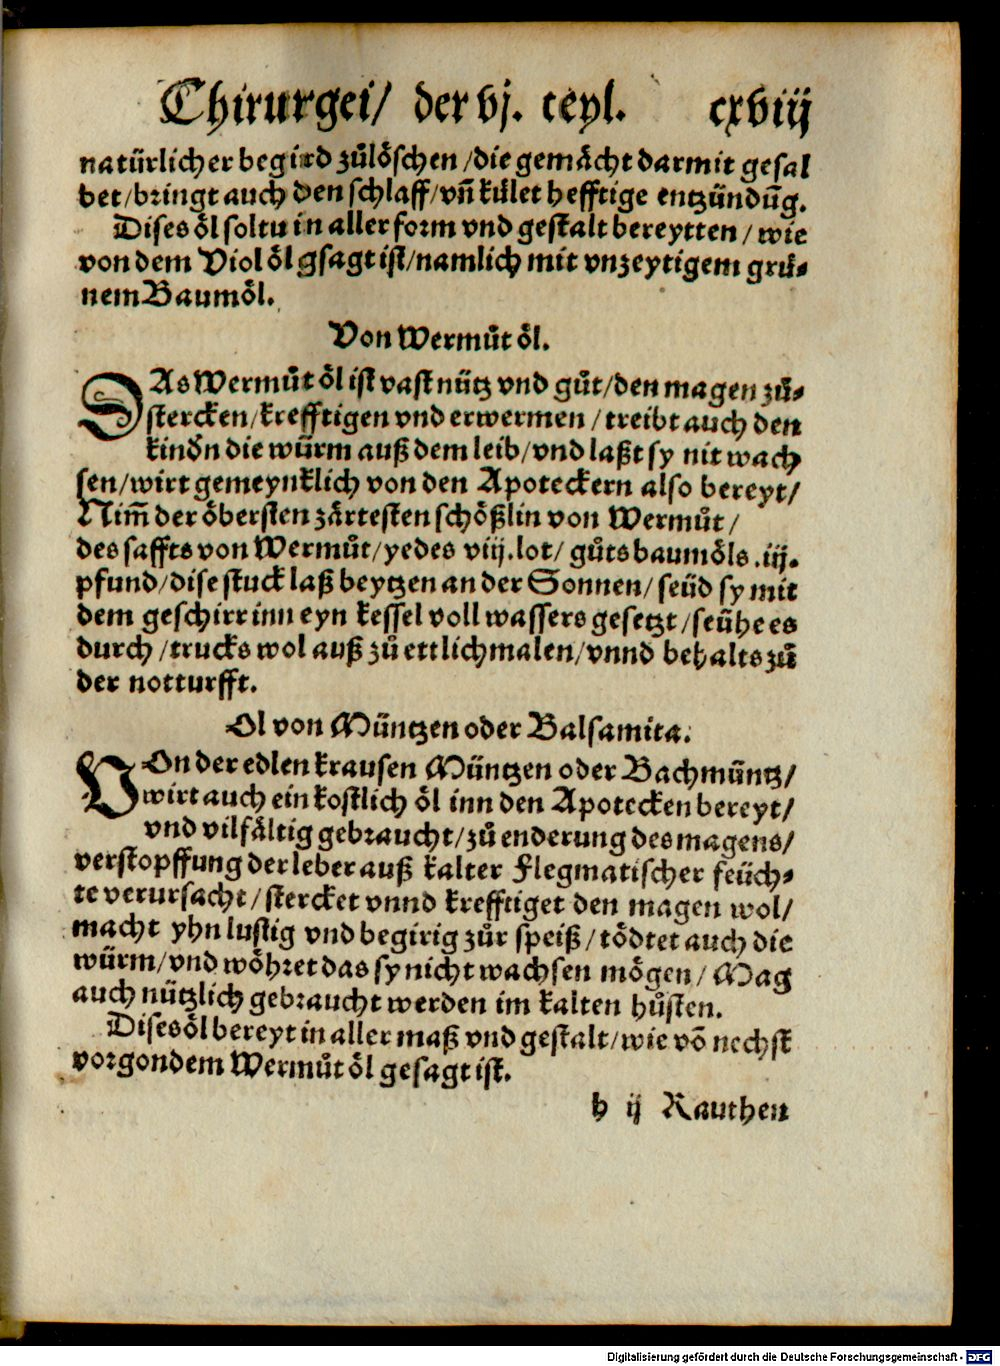 Chirurgei/ der vj. teyl. cxviij
natürlicher begird zůlöschen/die gemächt darmit gesal
bet/bringt auch den schlaff/vñ kület hefftige entzündũg.
Dises öl soltu in aller form vnd gestalt bereytten/wie
von dem Viol öl gsagt ist/namlich mit vnzeytigem grü-
nem Baumöl.
Von Wermůt öl.
DAs Wermůt öl ist vast nütz vnd gůt/den magen zů-
stercken/krefftigen vnd erwermen/treibt auch den
kindn̄ die würm auß dem leib/vnd laßt sy nit wach
sen/wirt gemeynklich von den Apoteckern also bereyt/
Nim̄ der öbersten zärtesten schößlin von Wermůt/
des saffts von Wermůt/yedes viij.lot/ gůts baumöls.iij.
pfund/dise stuck laß beytzen an der Sonnen/seüd sy mit
dem geschirr inn eyn kessel voll wassers gesetzt/seühe es
durch/trucks wol auß zů ettlichmalen/vnnd behalts zů
der notturfft.
Öl von Müntzen oder Balsamita.
VOn der edlen krausen Müntzen oder Bachmüntz/
wirt auch ein kostlich öl inn den Apotecken bereyt/
vnd vilfältig gebraucht/zů enderung des magens/
verstopffung der leber auß kalter Flegmatischer feüch-
te verursacht/stercket vnnd krefftiget den magen wol/
macht yhn lustig vnd begirig zůr speiß/tödtet auch die
würm/vnd wöhret das sy nicht wachsen mögen/Mag
auch nützlich gebraucht werden im kalten hůsten.
Dises öl bereyt in aller maß vnd gestalt/wie võ nechst
vorgondem Wermůt öl gesagt ist.
h ij Rauthen
Digitalisierung gefördert durch die Deutsche Forschungsgemeinschaft - DFG